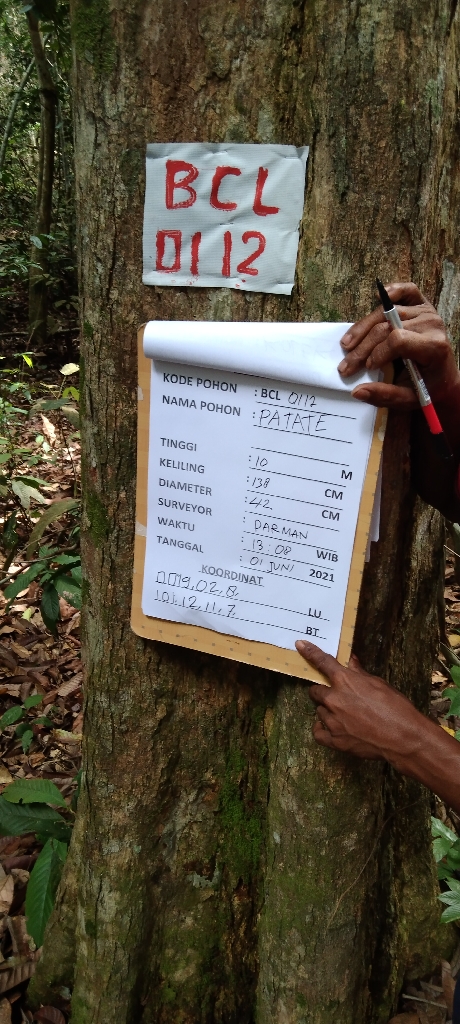 BCL
0112
KODE POHON : BCL 0112
NAMA POHON : PATATE
TINGGI : 10 M
KELILING : 138 CM
DIAMETER : 42 CM
SURVEYOR : DARMAN
WAKTU : 13:08 WIB
TANGGAL : 01 JUNI 2021
KOORDINAT
LU
101.12.11,7 BT